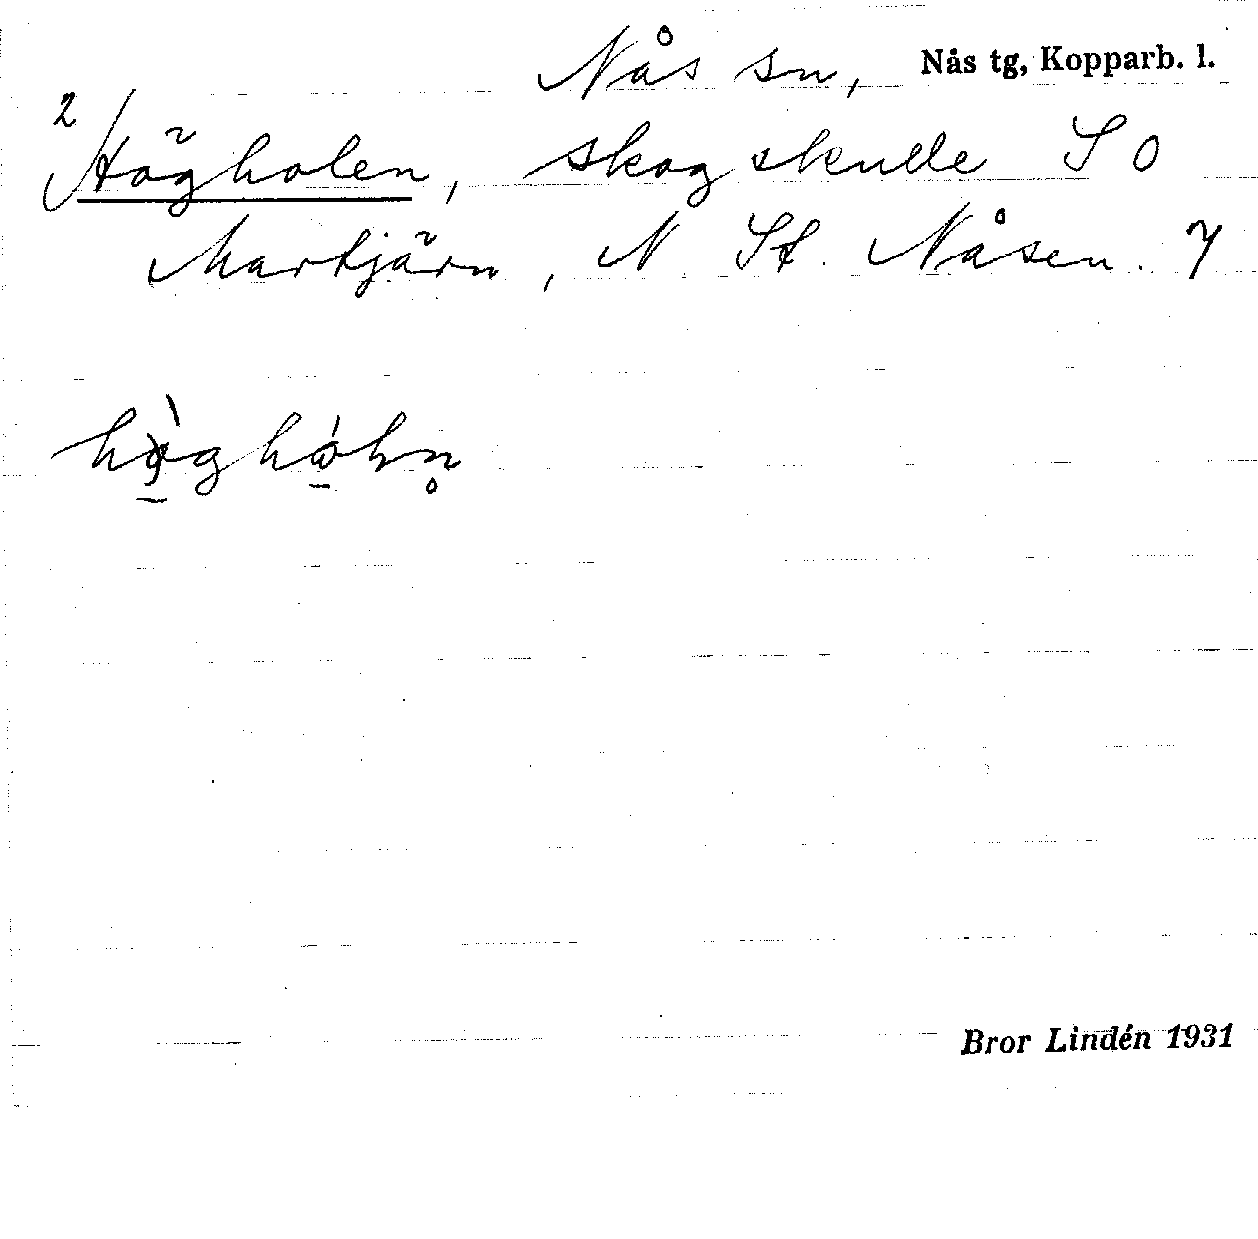 Nås sn, Nås tg, Kopparb. l.
2 Högholen, skogskulle S O
Martjärn, N St. Nåsen. 7
Bror Lindén 1931